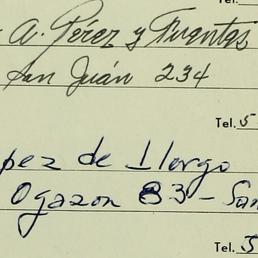 A. Pérez y Fuentes
San Juán 234
Tel. 5
pez de Llergo
Ogazon 83 - San
Tel. 5